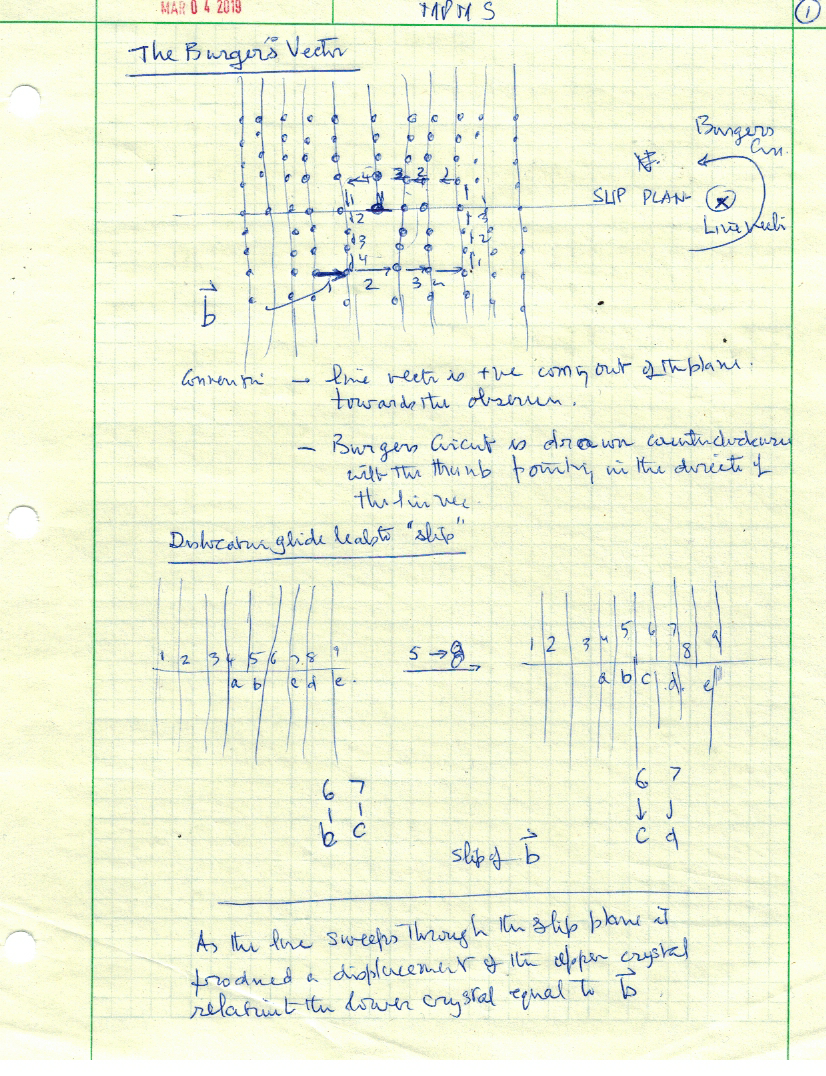 MAR 04 2019
MPMS
1
The Burger's Vector
Burgers
SLIP PLAN-
Line vecti
4 3 2 1
1
2
3
4
3
2
1
1 2 3 4
b
Convention → line vectr is +ve coming out of the plane.
towards the observer.
– Burgers Circuit is drawn counterclockwise
with the thumb pointing in the directi of
the lin vec.
Dislocation glide leads to "slip"
1 2 3 4 5 6 7 8 9
a b c d e.
5 → 8
1 2 3 4 5 6 7 8 9
a b c d e
6 7
b c
6 7
↓ ↓
c d
slip of b
As the line sweeps through the slip plane it
produced a displacement of the upper crystal
relativ to the lower crystal equal to b.